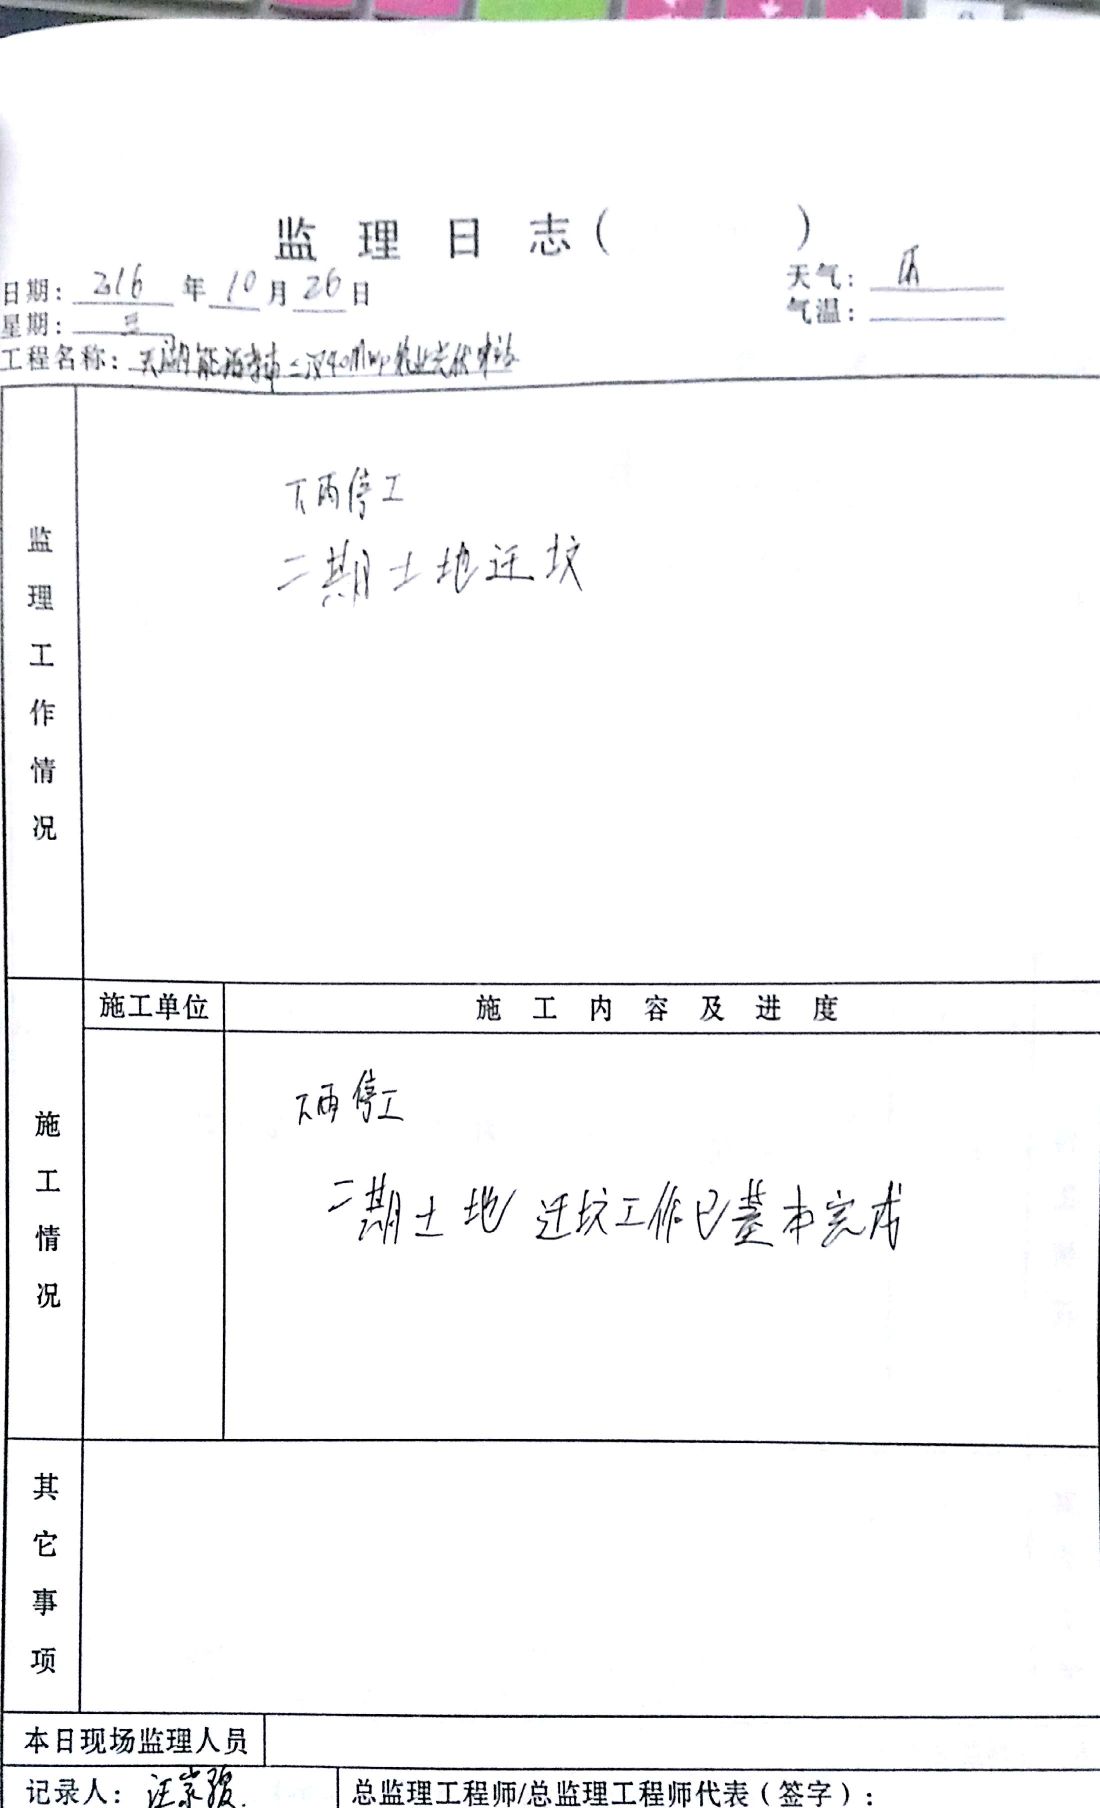 监理日志（ ）
日期：2016年10月26日
天气：雨
星期：三
气温：
工程名称：二汊40MWp农业光伏电站
监理工作情况
下雨停工
二期土地迁坟
施工单位
施工内容及进度
施工情况
下雨停工
二期土地迁坟工作已基本完成
其它事项
本日现场监理人员
记录人：汪
总监理工程师/总监理工程师代表（签字）：